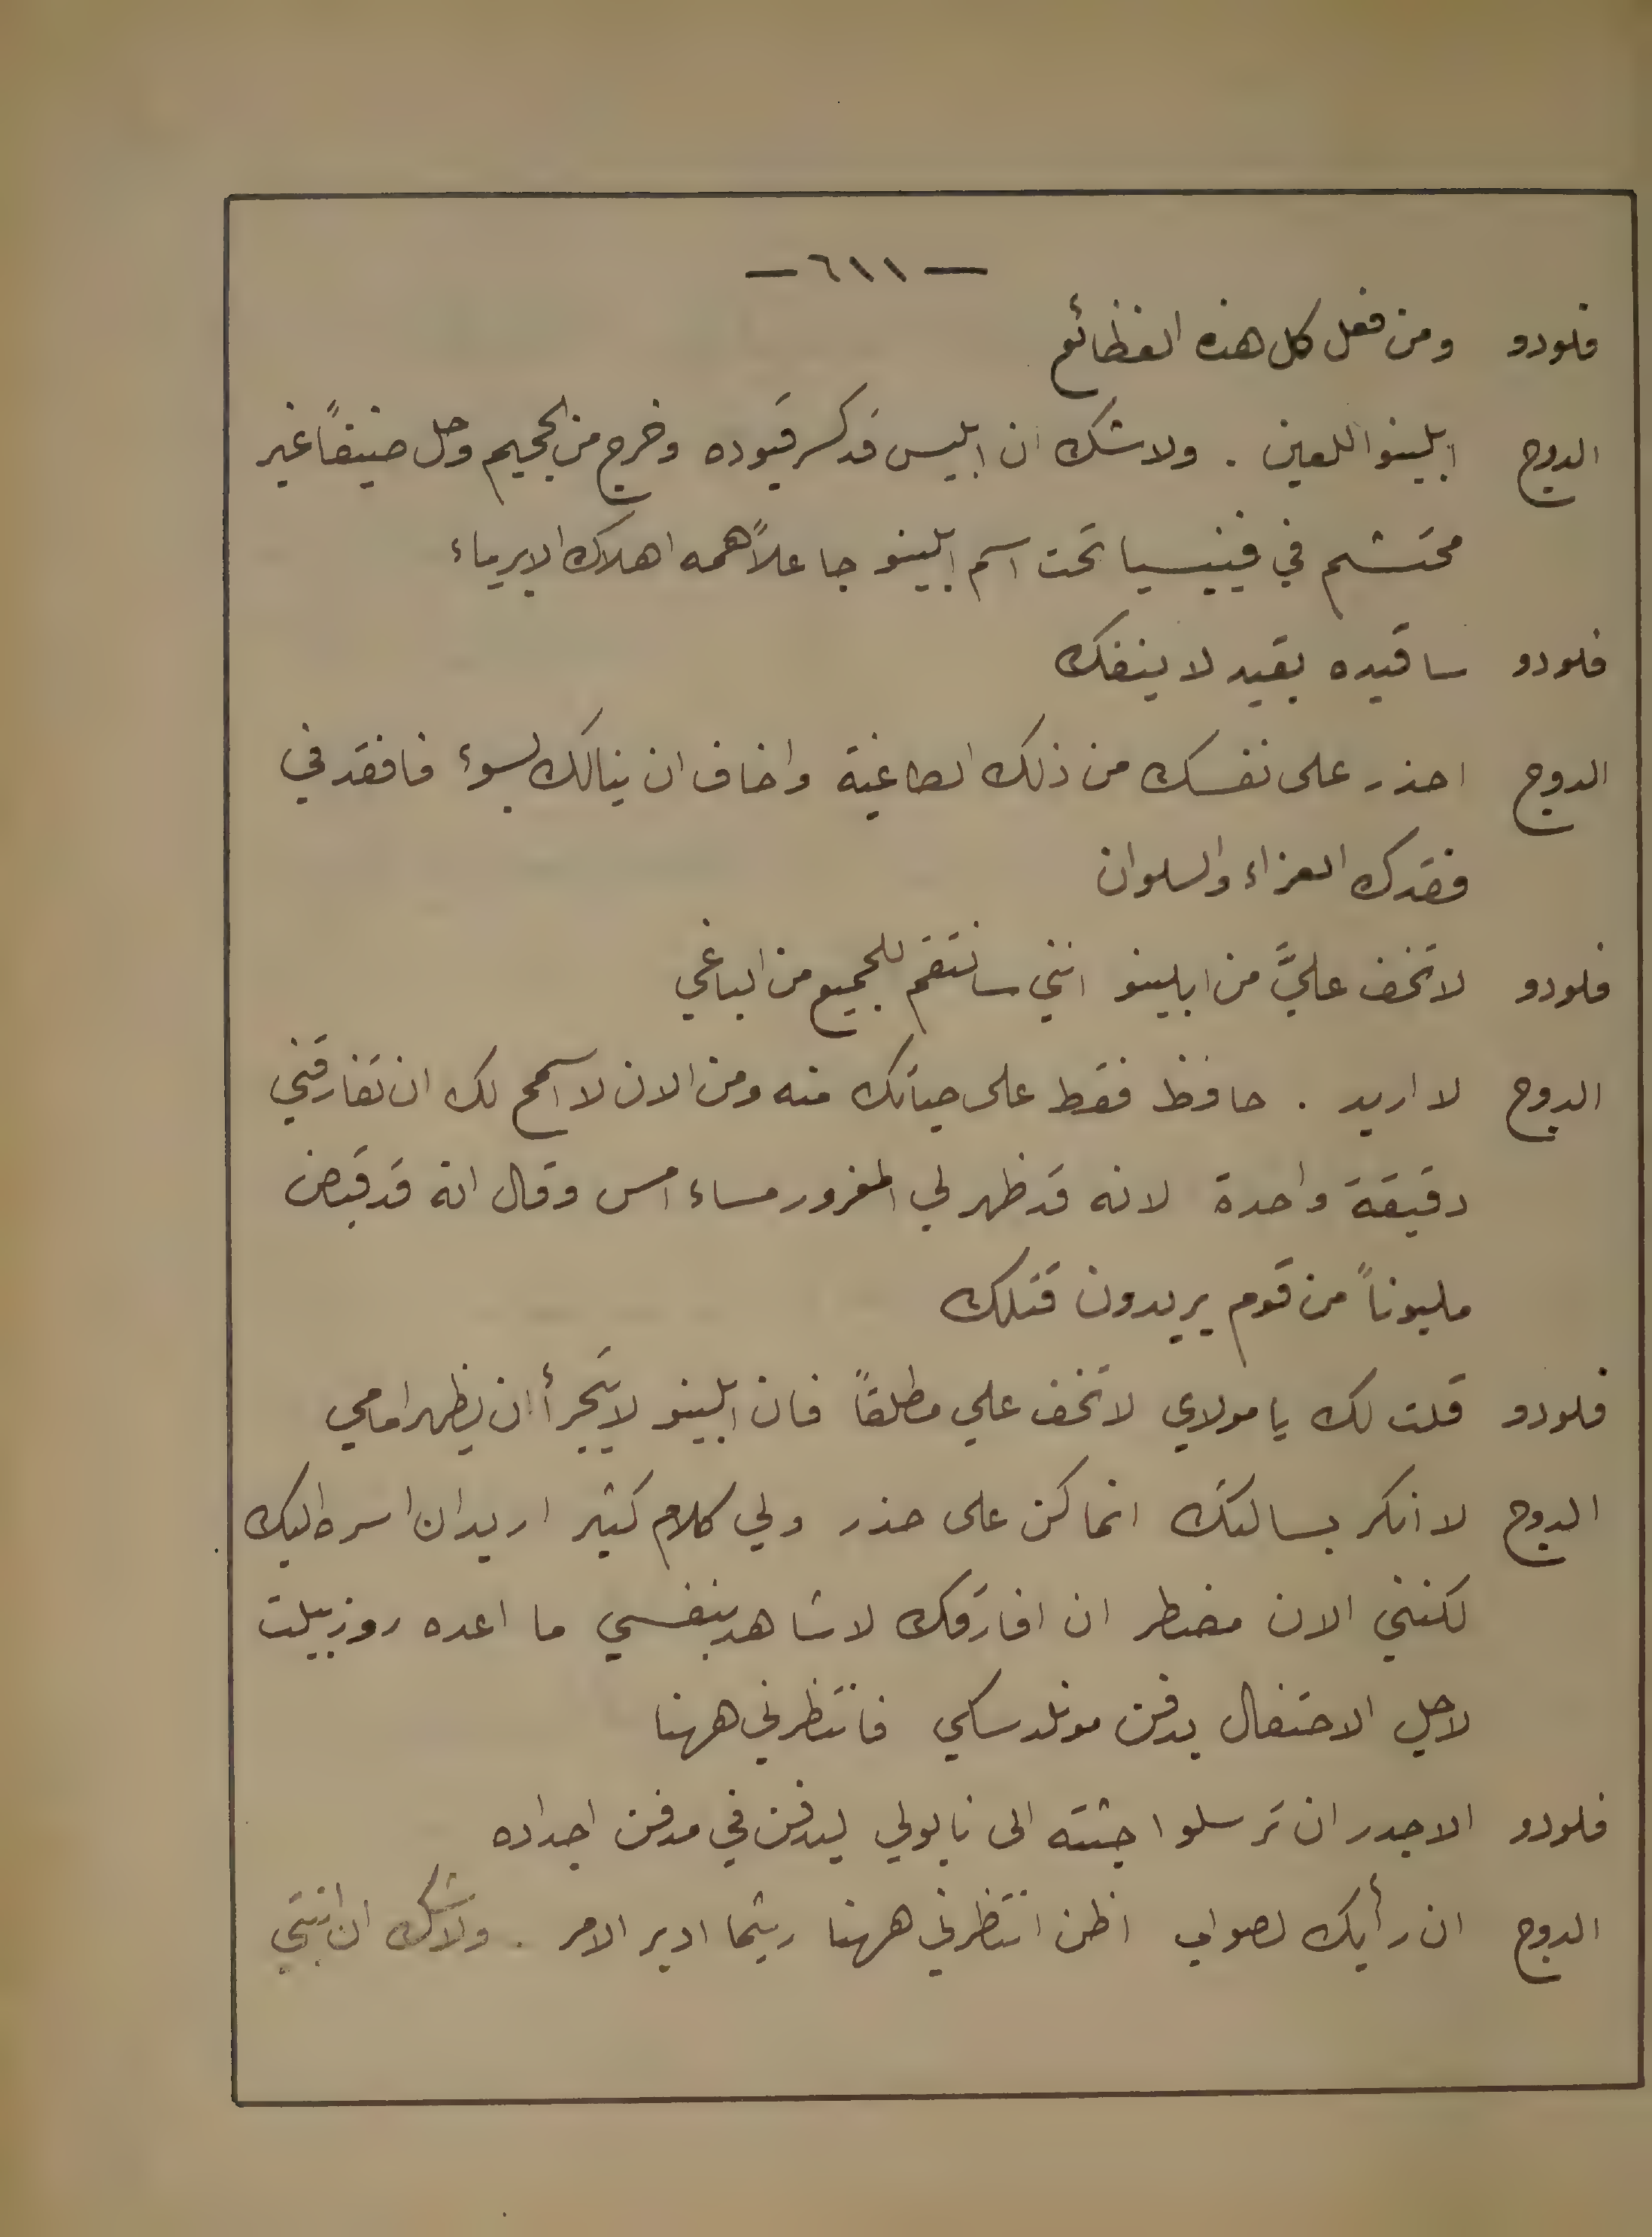 — ٦١١ —
فلودو ومن فعل كل هذه الفظائع
الدوج ابلينو اللعين . ولا شك ان ابليس قد كسر قيوده وخرج من الجحيم وحل ضيفاً غير
محتشم في فينيسيا تحت اسم ابلينو جاعلاً همه اهلاك الابرياء
فلودو ساقيده بقيد لا ينفك
الدوج احذر على نفسك من ذلك الطاغية واخاف ان ينالك بسوء فافقد في
فقدك العزاء والسلوان
فلودو لا تخف عليَّ من ابلينو انني سانتقم للجميع من الباغي
الدوج لا اريد . حافظ فقط على حياتك منه ومن الان لا اسمح لك ان تفارقني
دقيقة واحدة لانه قد ظهر لي المغرور مساء امس وقال انه قد قبض
مليوناً من قوم يريدون قتلك
فلودو قلت لك يا مولاي لا تخف علي مطلقاً فان ابلينو لا يتجرأ ان يظهر امامي
الدوج لا انكر بسالتك انما كن على حذر ولي كلام كثير اريد ان اسره اليك
لكنني الان مضطر ان افارقك لاشاهد بنفسي ما اعده روزبيلت
لاجل الاحتفال بدفن مونلدسكي فانتظرني ههنا
فلودو الاجدر ان ترسلوا جثته الى نابولي ليدفن في مدفن اجداده
الدوج ان رأيك لصواب اظن انتظرني ههنا ريثما ادبر الامر . ولا شك ان ابنتي